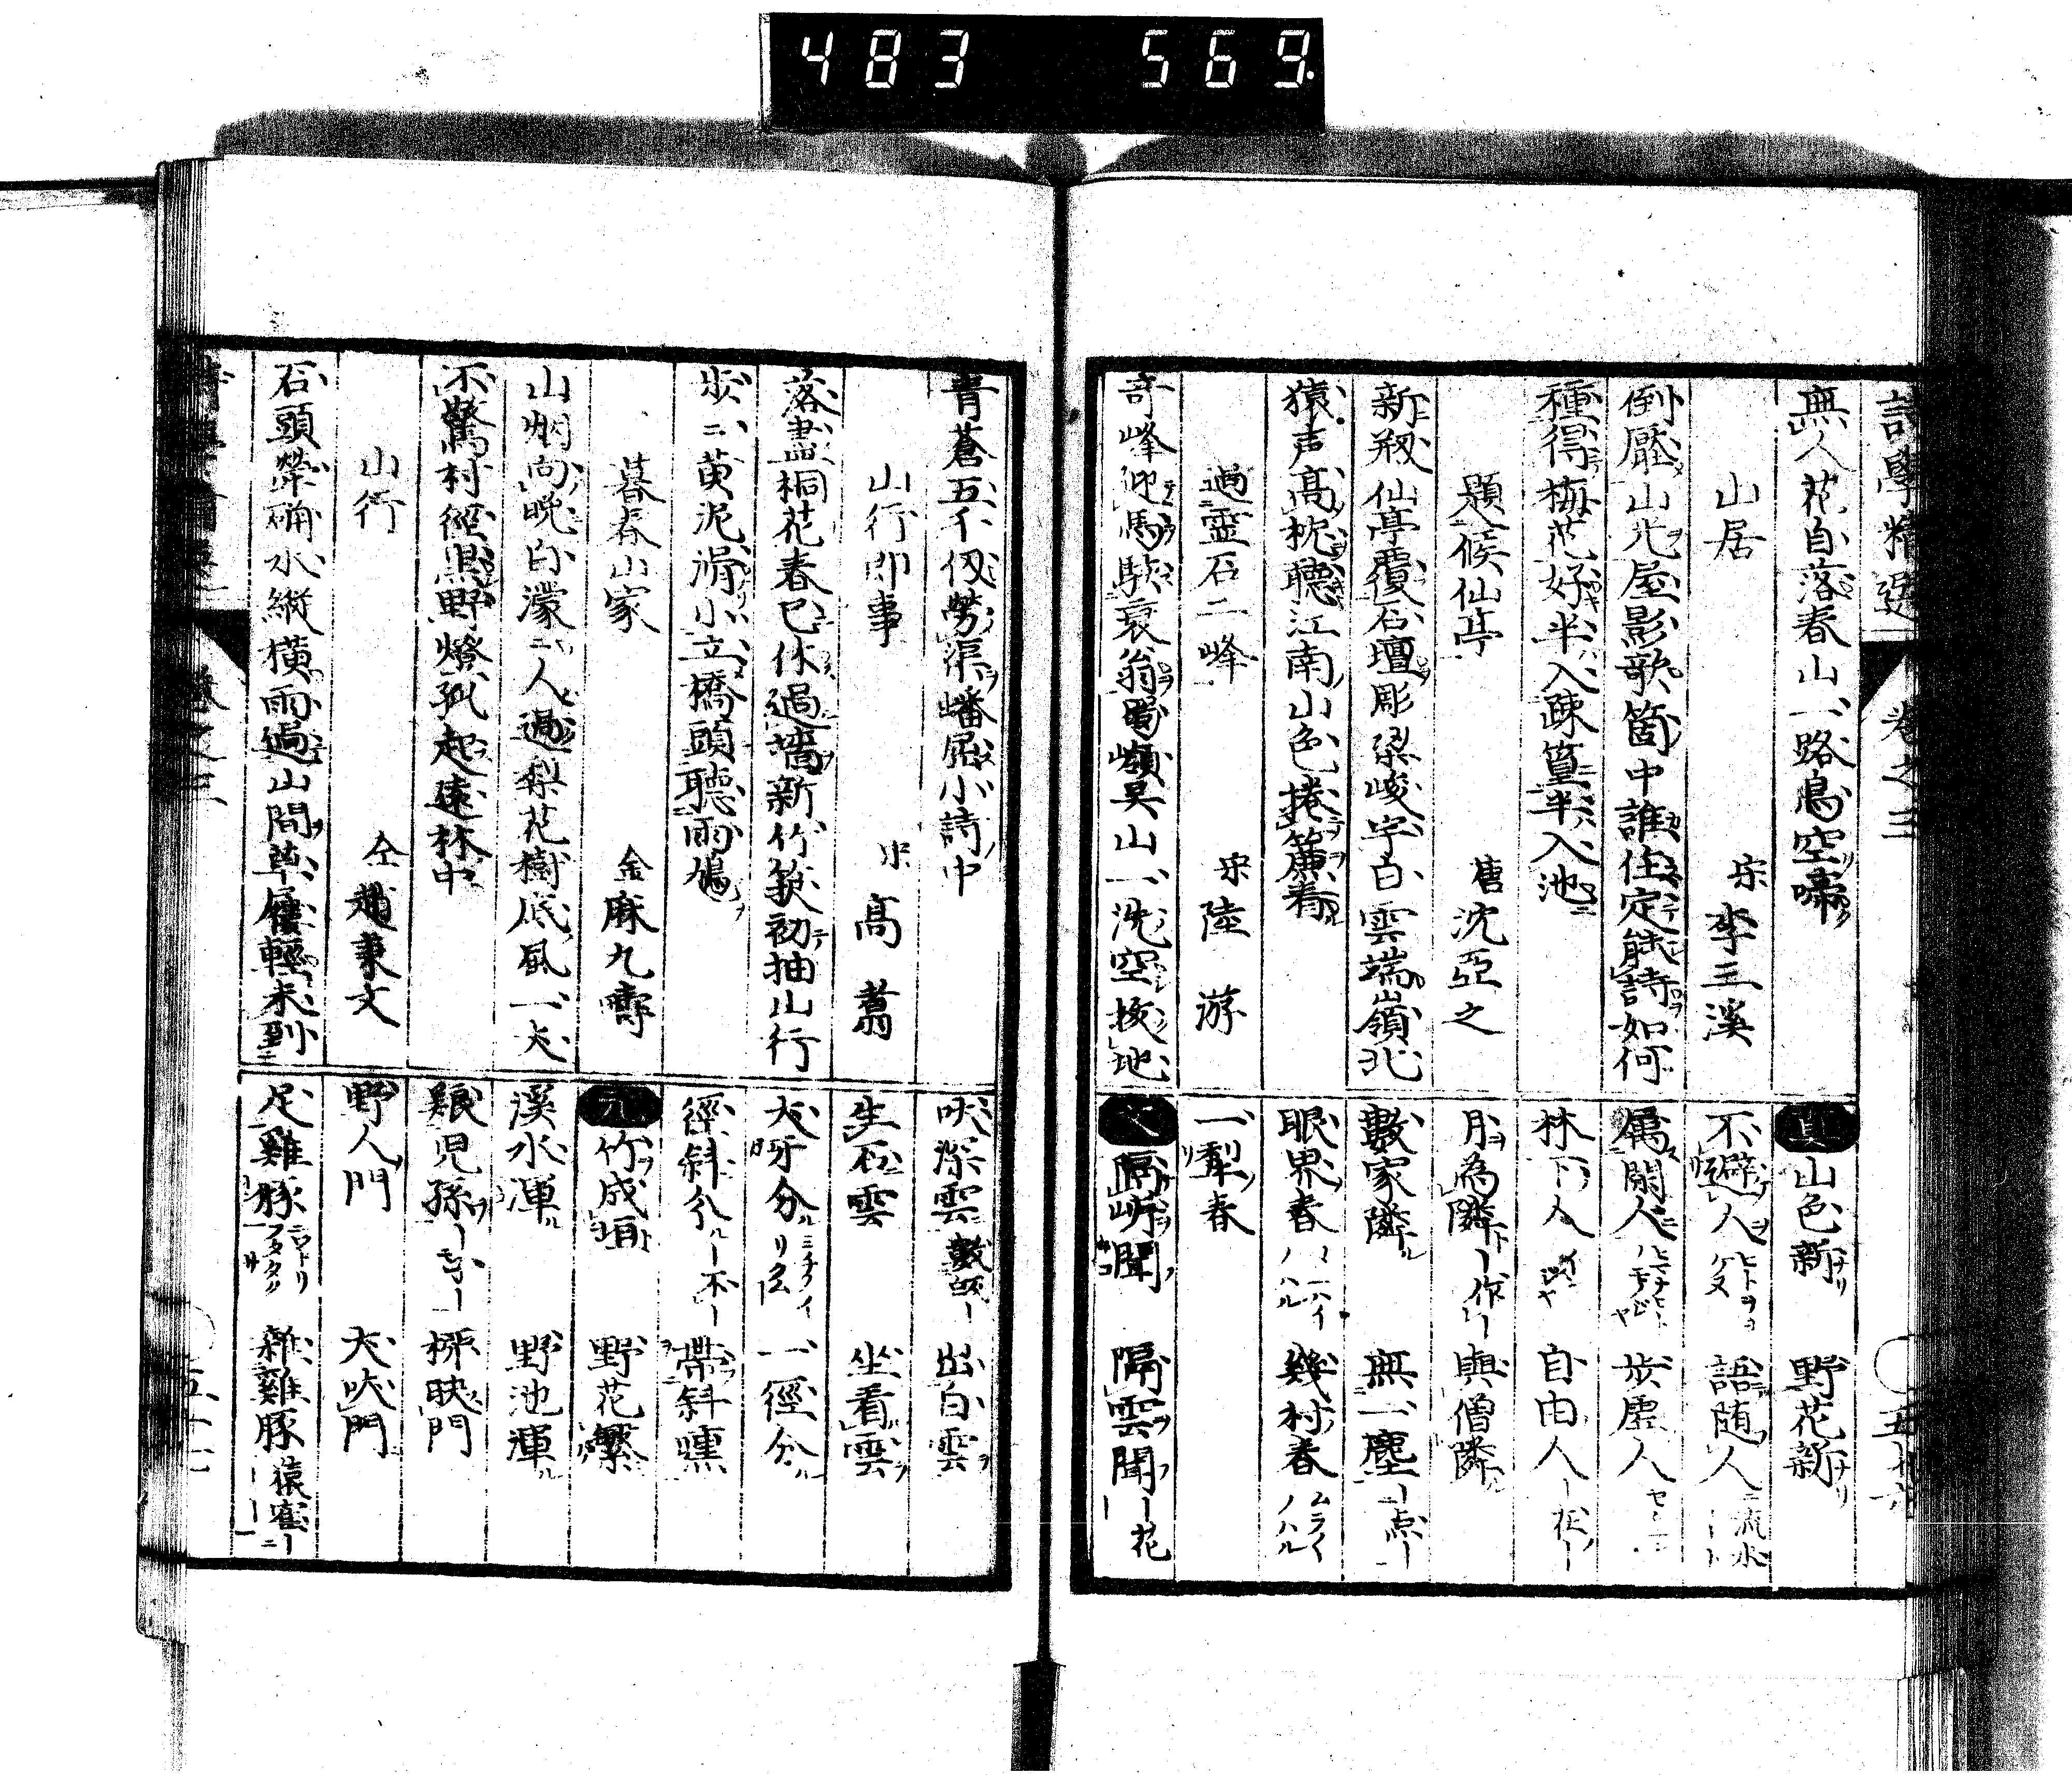 483 569
詩學精選 卷之三
無人花自落春山一路鳥空啼
山居 宋 李三溪
倒壓山光屋影欹箇中誰住定能詩如何
種得梅花好半入疎篁半入池
題候仙亭 唐 沈亞之
新剏仙亭覆石壇彫梁峻宇白雲端嶺北
猿声高枕聽江南山色捲簾看
過靈石二峰 宋 陸游
奇峰迎馬駭衰翁蜀嶺吳山一洗空拔地
山色新 野花新
不避人 語随人
屬閑人 步虛人
林下人 自由人
月為隣 與僧隣
數家隣 無一塵
眼界春 幾村春
一犁春
隔岍聞 隔雲聞
青蒼五千仭勞渠蟠屈小詩中
山行即事 宋 高翥
落盡桐花春已休過墻新竹笋初抽山行
步ニ黄泥滑小立橋頭聽雨鳩
暮春山家 金 麻九疇
山烟向晩白濛ニ人過梨花樹底風一犬
不驚村徑黒野燈孤起遠林中
山行 仝 趙秉文
石頭犖确水縱横雨過山間草屨輕未到
吠深雲 出白雲
生石雲 坐看雲
犬牙分 一徑分
徑斜分 帶斜曛
元 竹成垣 野花繁
溪水渾 野池渾
長児孫 柳映門
野人門 犬吠門
足雞豚 雜雞豚